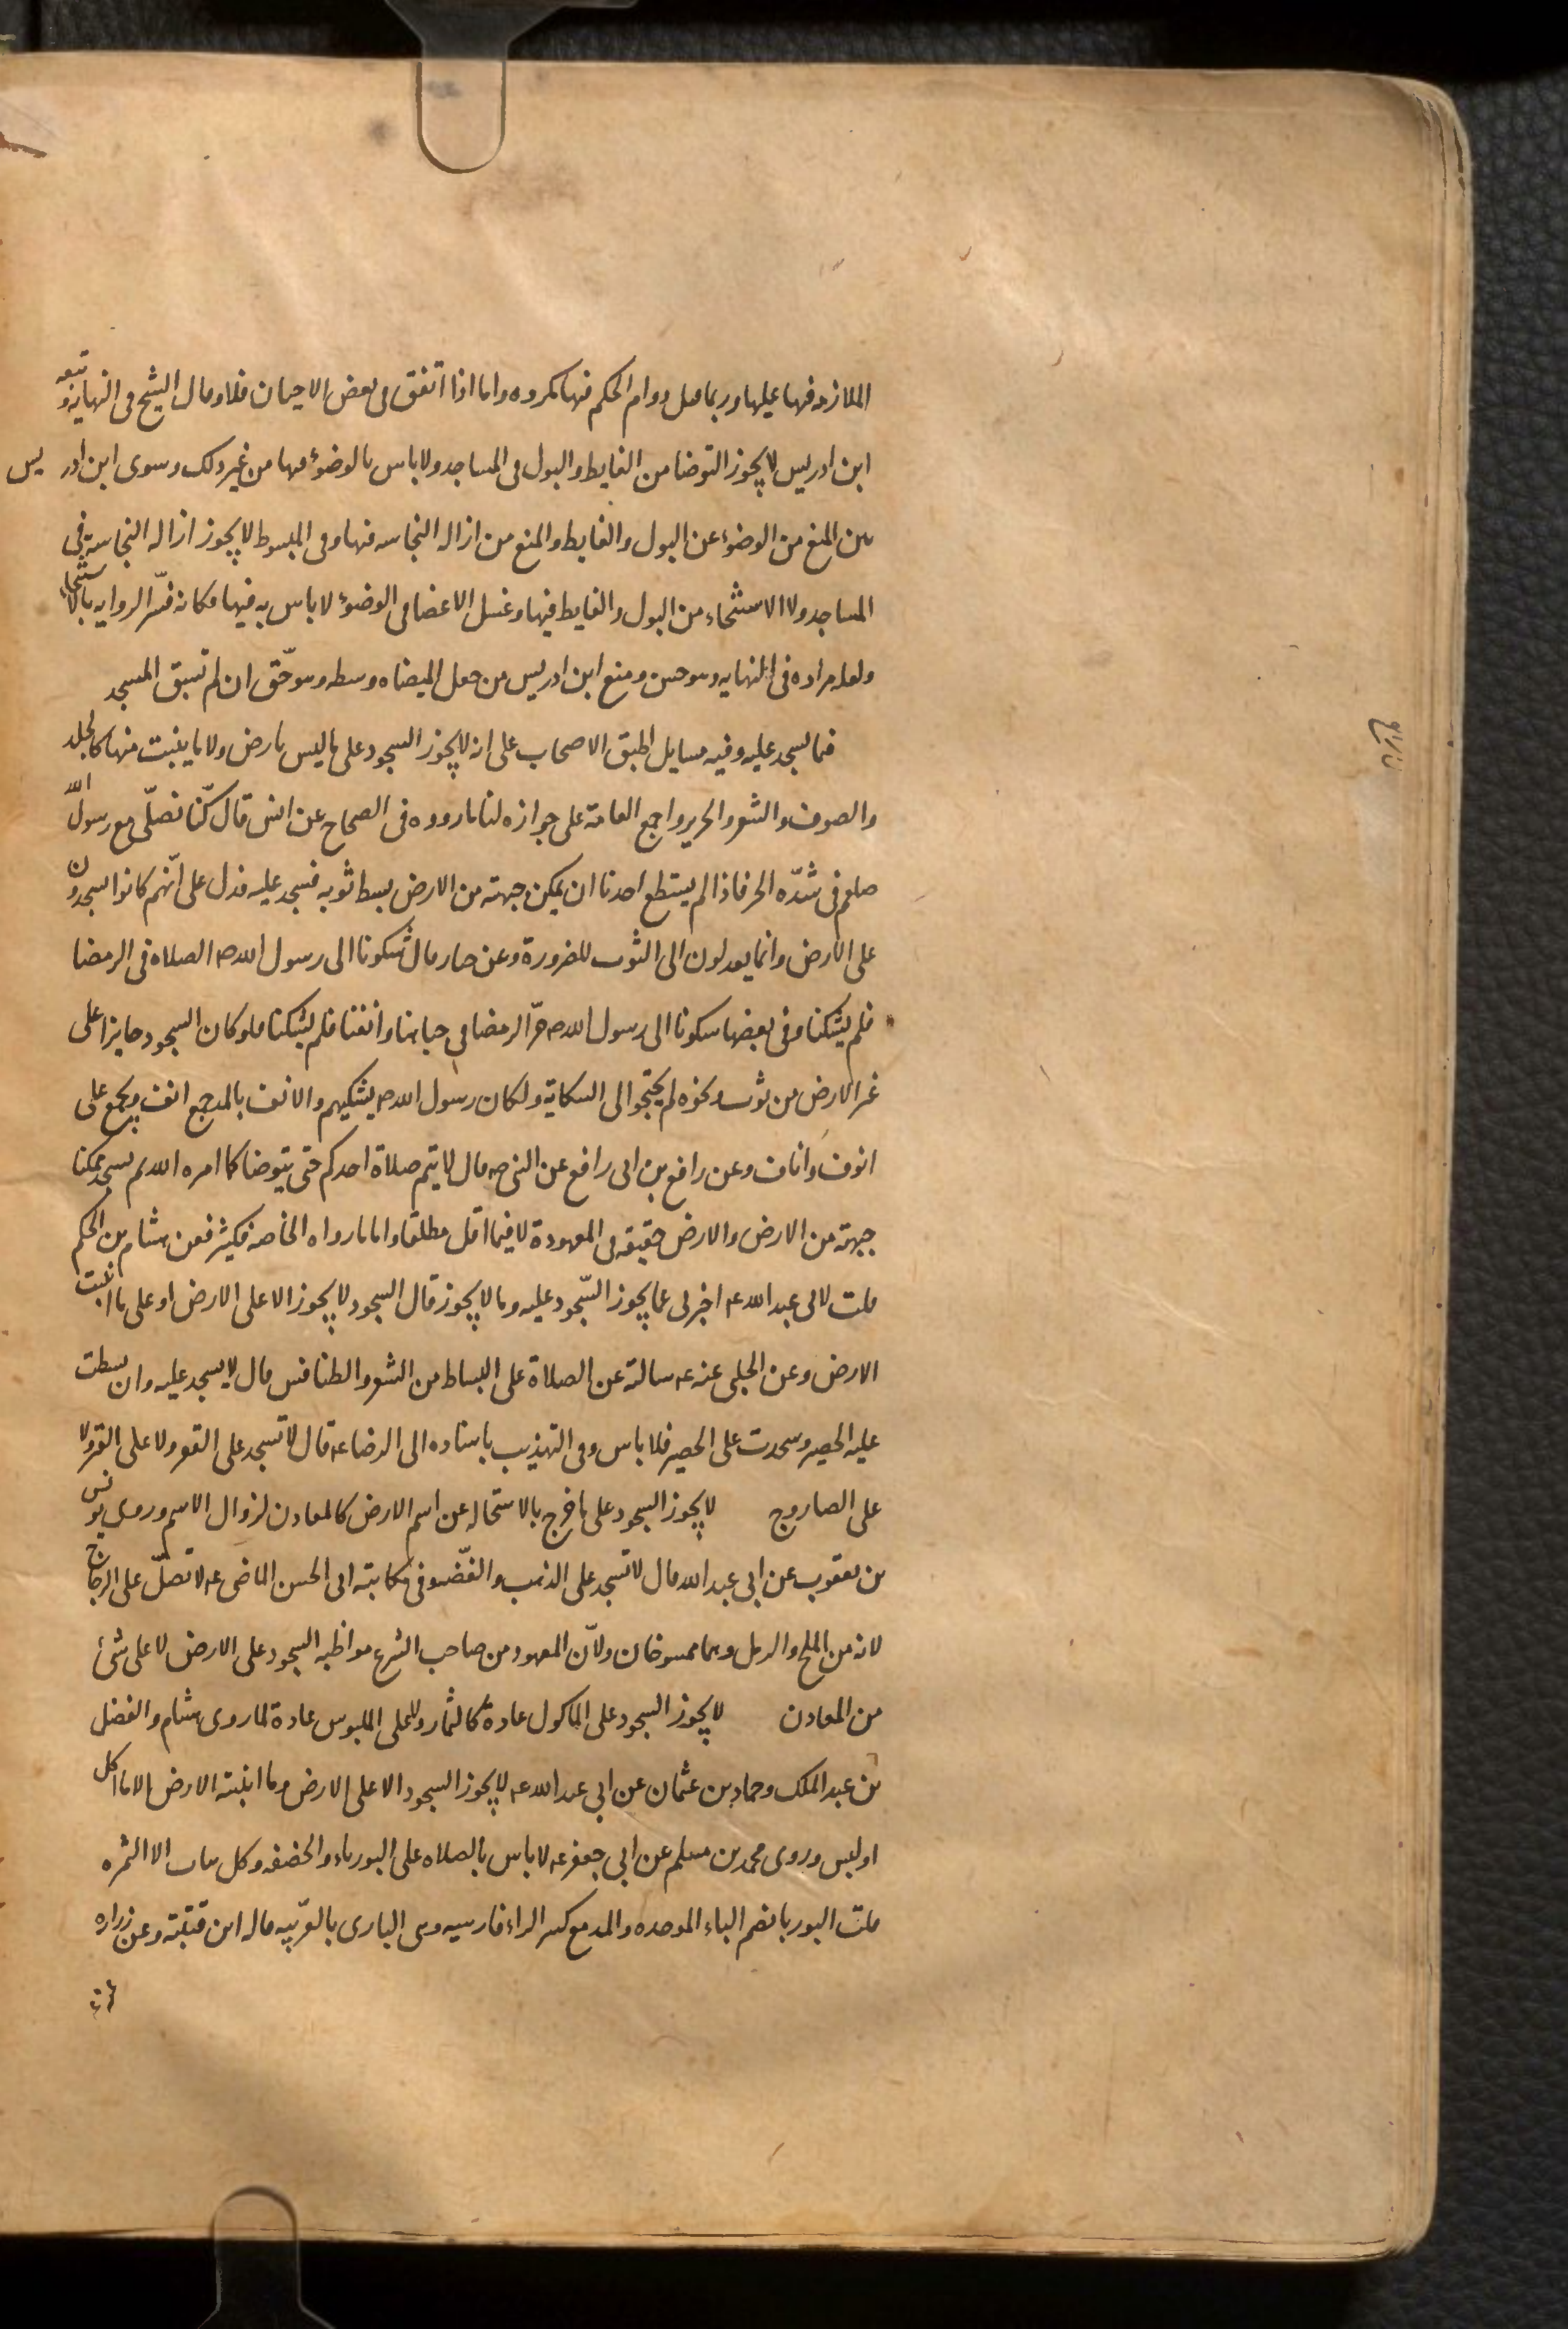 الملازمه فيها عليها وربما قيل دوام الحكم فيها مكروه واما اذا اتفق فى بعض الاحيان فلا وقال الشيخ فى النهايه وتبعه
ابن ادريس لا يجوز التوضا من الغايط والبول فى المساجد ولا باس بالوضوء فيها من غير ذلك وسوى ابن ادريس
بين المنع من الوضوء عن البول والغايط والمنع من ازاله النجاسه فيها وفى المبسوط لا يجوز ازاله النجاسة فى
المساجد ولا الاستنجاء من البول والغايط فيها وغسل الاعضا فى الوضوء لا باس به فيها وكانه فسّر الروايه بالاستنجاء
ولعله مراده فى النهايه وهو حسن ومنع ابن ادريس من جعل الميضاه وسطه وهو حّق ان لم تسبق المسجد
فيما يسجد عليه وفيه مسايل اطبق الاصحاب على انه لا يجوز السجود على ما ليس بارض ولا ما ينبت منها كالجلد
والصوف والشعر والحرير واجمع العامة على جوازه لنا ما رووه فى الصحاح عن انس قال كنّا نصلّى مع رسول الله
صلعم فى شدّه الحر فاذا لم يستطع احدنا ان يمكن جبهته من الارض بسط ثوبه فسجد عليه فدل على انّهم كانوا يسجدون
على الارض وانما يعدلون الى الثوب للضرورة وعن قال شكونا الى رسول الله ص الصلاه فى الرمضا
فلم يشكنا وفى بعضها شكونا الى رسول الله ص حرّ الرمضا فى جباهنا واكفنا فلم يشكنا فلو كان السجود جايزا على
غير الارض من ثوب ونحوه لم يحتجوا الى الشكاية ولكان رسول الله ص يشكيهم والانف بالمد جمع انف ويجمع على
انوف واناف وعن رافع بن ابى رافع عن النبى ص قال لا يتم صلاة احدكم حتى يتوضا كما امره الله ثم يسجد ممكنا
جبهته من الارض والارض حقيقه فى المعهودة لا فيما اقل مطلقا واما ما رواه الخاصه فكثير فعن هشام بن الحكم
قلت لابى عبد الله ع اخبرنى عما يجوز السّجود عليه وما لا يجوز قال السجود لا يجوز الا على الارض او على ما انبتت
الارض وعن الحلبى عنه ع سالته عن الصلاة على البساط من الشعر والطنافس قال لا يسجد عليه وان بسطت
عليه الحصير وسجدت على الحصير فلا باس وفى التهذيب باسناده الى الرضا ع قال لا تسجد على القفر ولا على القير ولا
على الصاروج لا يجوز السجود على ما خرج بالاستحاله عن اسم الارض كالمعادن لزوال الاسم وروى يونس
بن يعقوب عن ابى عبد الله قال لا تسجد على الذهب والفّضه وفى مكاتبته ابى الحسن الماضى ع لا تصلّ على الزجاج
لانه من الملح والرمل وهما ممسوخان ولانّ المعهود من صاحب الشرع مواظبه السجود على الارض لا على شئ
من المعادن لا يجوز السجود على الماكول عادة كالثمار ولا على الملبوس عادة لما روى هشام والفضل
بن عبد الملك وحماد بن عثمان عن ابى عبد الله ع لا يجوز السجود الا على الارض وما انبته الارض الا ما اكل
او لبس وروى محمد بن مسلم عن ابى جعفر ع لا باس بالصلاه على البورياء والخصفه وكل نبات الا الثمره
قلت البوريا بضم الباء الموحده والمد مع كسر الراء فارسيه وهى البارى بالعّربيه قاله ابن قتيبة وعن زراره